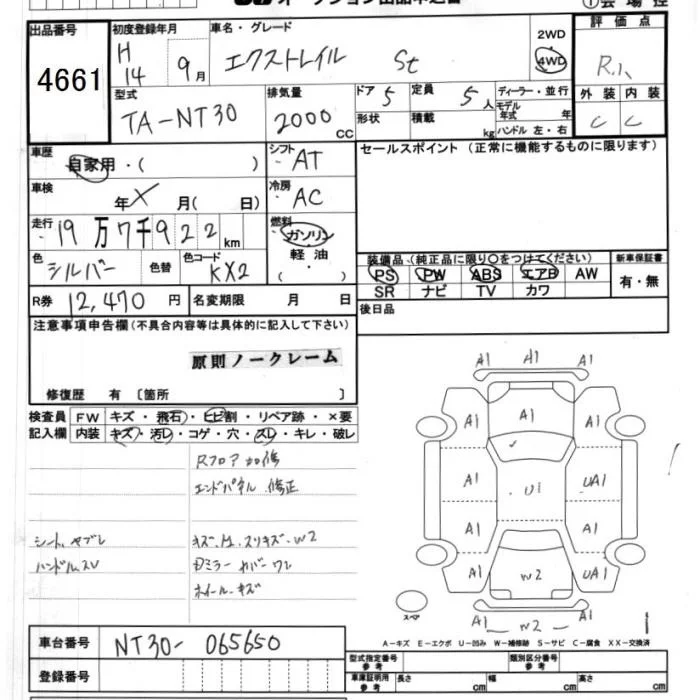 出品番号
4661
初度登録年月
H 14 9月
車名・グレード
エクストレイル St
2WD
4WD
評価点
R.1
型式
TA-NT30
排気量
2000 CC
ドア 5
定員 5人
形状
積載 kg
ディーラー・並行
モデル年式 年
ハンドル 左・右
外装 内装
C C
車歴
自家用・( )
シフト
AT
セールスポイント (正常に機能するものに限ります)
車検
年 X 月( 日)
冷房
AC
走行
19万7千922km
燃料
ガソリン
軽油
( ・ )
色
シルバー
色替
色コード
KX2
装備品(純正品に限り○をつけてください)
新車保証書
PS PW ABS エアB AW
SR ナビ TV カワ
有・無
R券 12,470円
名変期限 月 日
後日品
注意事項申告欄(不具合内容等は具体的に記入して下さい)
原則ノークレーム
修復歴 有〔箇所 〕
検査員 FW キズ・飛石・ヒビ割・リペア跡・×要
記入欄 内装 キズ・汚レ・コゲ・穴・スレ・キレ・破レ
Rフロア 加修
エンドパネル 修正
シート ヤブレ
キズ、A1 スリキズ、W2
ハンドル スレ
ミラー カバー ワレ
ホイール キズ
A1 A1 A1
A1 A1 A1
A1 U1 UA1
A1 A1
A1 W2 UA1
W2
スペア
A-キズ E-エクボ U-凹み W-補修跡 S-サビ C-腐食 XX-交換済
車台番号 NT30-065650
登録番号
型式指定番号 参考
類別区分番号 参考
車庫証明用 参考
長さ cm 幅 cm 高さ cm